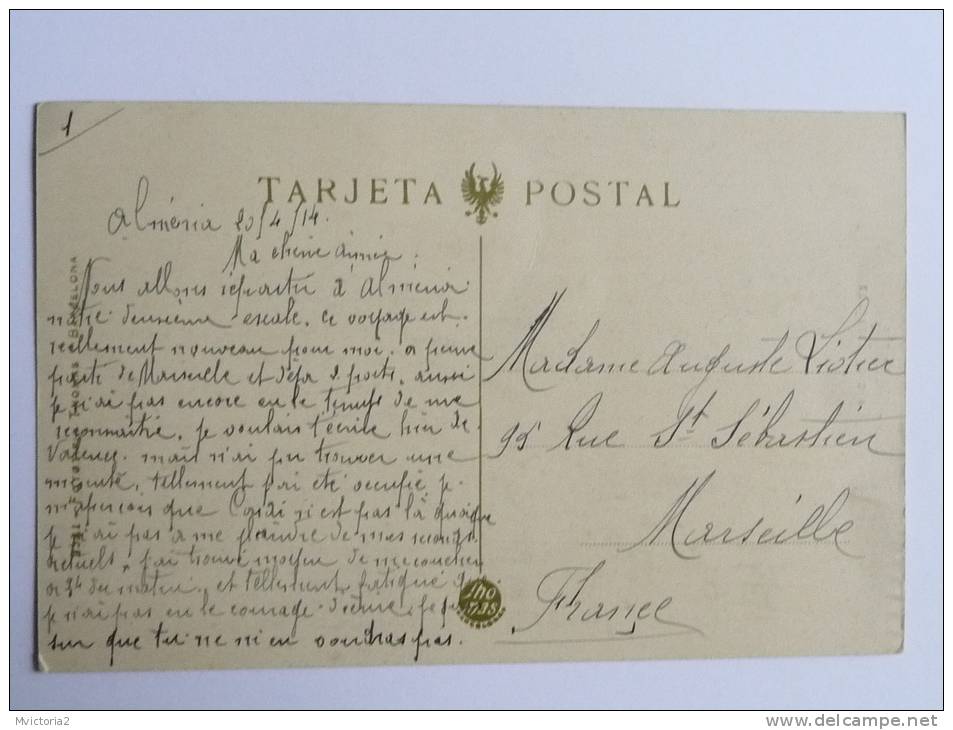 1
TARJETA POSTAL
Alméria 20/4/14.
Ma chère
Nous allons repartir d'Alméria
notre deuxième escale. Ce voyage est
reellement nouveau pour moi. a peine
parti de Marseille et déja 2 ports. aussi
je n'ai pas encore eu le temps de me
reconnaitre. Je voulais t'écrire hier de
Valence. mais n'ai pu trouver une
minute, tellement j'ai été occupé je
m'aperçois que n'est pas là quoique
je n'ai pas a me plaindre de mes
actuels. j'ai trouvé moyen de me coucher
a 3h du matin. et tellement fatigué que
je n'ai pas eu le courage d'écrire. Je
sur que tu ne m'en voudras pas.
Madame Auguste
95 Rue St Sébastien
Marseille
France
BARCELONA
THOMAS
Mvictoria2
www.delcampe.net